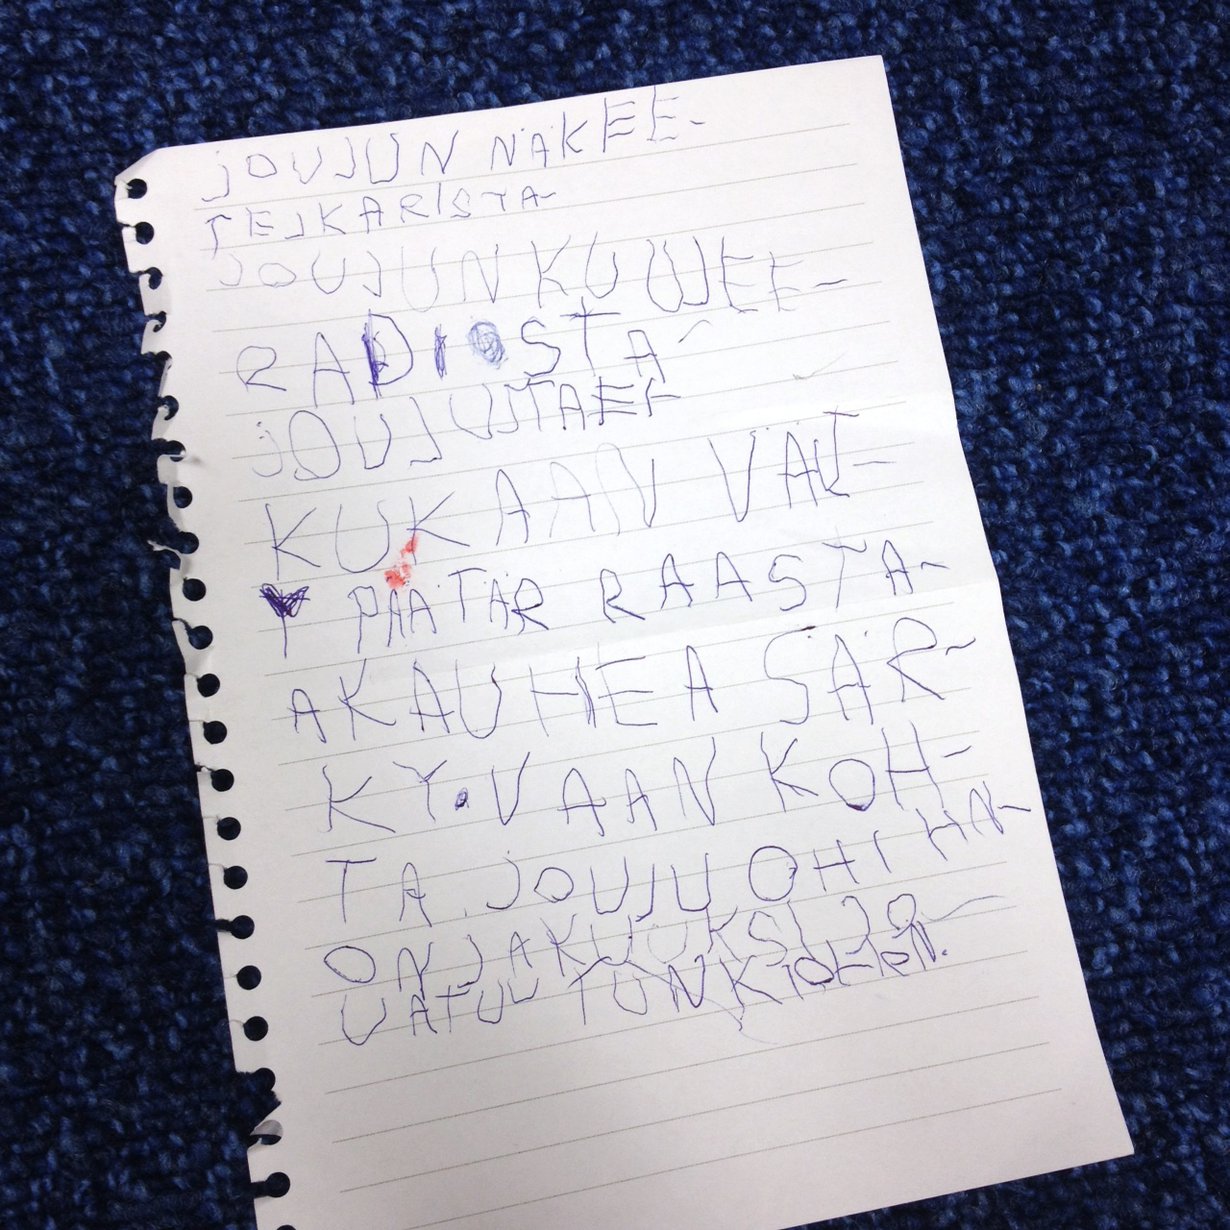 JOUJUN NÄKEE-
TEJKARISTA-
JOUJUN KUUJEE-
RADIOSTA-
JOUJUJTAEI-
KUKAAN VÄJ-
Y PÄÄTÄR RAASTA-
A KAUHEA SÄR-
KY. VAAN KOH-
TA JOUJU OHI HN-
ON JA KUUKSI JO-
UATUU TUNK